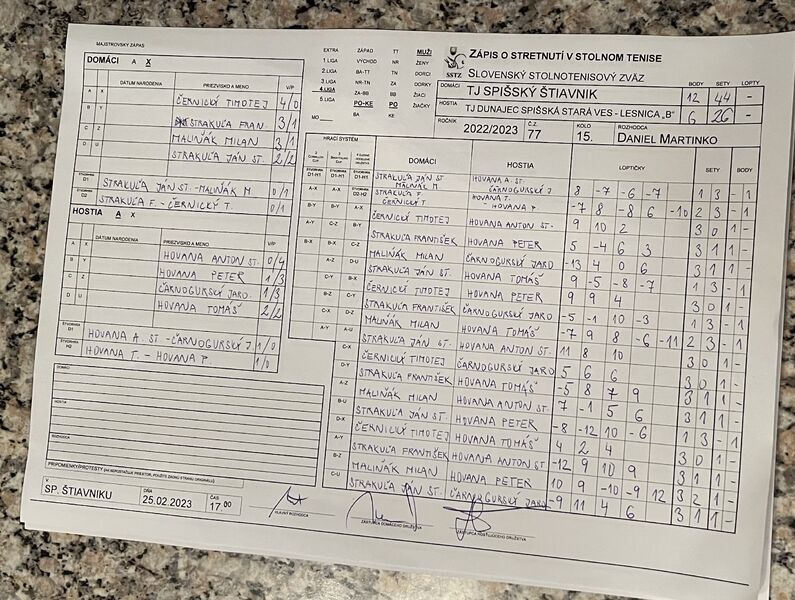 MAJSTROVSKÝ ZÁPAS
EXTRA ZÁPAD TT MUŽI
1.LIGA VÝCHOD NR ŽENY
2.LIGA BA-TT TN DORCI
3.LIGA NR-TN ZA DORKY
4.LIGA ZA-BB BB ŽIACI
5.LIGA PO-KE PO ŽIAČKY
MO BA KE
SSTZ
ZÁPIS O STRETNUTÍ V STOLNOM TENISE
SLOVENSKÝ STOLNOTENISOVÝ ZVÄZ
BODY SETY LOPTY
DOMÁCI TJ SPIŠSKÝ ŠTIAVNIK 12 44 -
HOSTIA TJ DUNAJEC SPIŠSKÁ STARÁ VES - LESNICA „B" 6 26 -
ROČNÍK 2022/2023 ČZ 77 KOLO 15. ROZHODCA DANIEL MARTINKO
DOMÁCI A X
DÁTUM NARODENIA PRIEZVISKO A MENO V/P
A X ČERNICKÝ TIMOTEJ 4/0
B Y STRAKUĽA FRAN. 3/1
C Z MALIŇÁK MILAN 3/1
D U STRAKUĽA JÁN ST. 2/2
ŠTVORHRA D1 STRAKUĽA JÁN ST.-MALIŇÁK M 0/1
ŠTVORHRA D2 STRAKUĽA F. - ČERNICKÝ T. 0/1
HOSTIA A X
DÁTUM NARODENIA PRIEZVISKO A MENO V/P
A X HOVANA ANTON ST. 0/4
B Y HOVANA PETER 1/3
C Z ČARNOGURSKÝ JARO. 1/3
D U HOVANA TOMÁŠ 2/2
HOVANA A. ST -ČARNOGURSKÝ J. 1/0
ŠTVORHRA H2 HOVANA T. - HOVANA P. 1/0
DOMÁCI
HOSTIA
ROZHODCA
PRIPOMIENKY/PROTESTY
V SP. ŠTIAVNIKU DŇA 25.02.2023 ČAS 17.00
HLAVNÝ ROZHODCA
ZÁSTUPCA DOMÁCEHO DRUŽSTVA
ZÁSTUPCA HOSŤUJÚCEHO DRUŽSTVA
HRACÍ SYSTÉM DOMÁCI HOSTIA LOPTIČKY SETY BODY
D1-H1 STRAKUĽA JÁN ST MALIŇÁK M. HOVANA A. ST. ČARNOGURSKÝ J 8 -7 -6 -7 1 3 - 1
A-X D2-H2 STRAKUĽA F. ČERNICKÝ T. HOVANA T. HOVANA P -7 8 -8 6 -10 2 3 - 1
B-Y A-X ČERNICKÝ TIMOTEJ HOVANA ANTON ST. 9 10 2 3 0 1 -
A-Y C-Z B-Y STRAKUĽA FRANTIŠEK HOVANA PETER 5 -4 6 3 3 1 1 -
B-X C-Z MALIŇÁK MILAN ČARNOGURSKÝ JARO -13 4 0 6 3 1 1 -
A-Z D-U STRAKUĽA JÁN ST. HOVANA TOMÁŠ 9 -5 -8 -7 1 3 - 1
ČERNICKÝ TIMOTEJ HOVANA PETER 9 9 4 3 0 1 -
STRAKUĽA FRANTIŠEK ČARNOGURSKÝ JARO -5 -1 10 -3 1 3 - 1
MALIŇÁK MILAN HOVANA TOMÁŠ -7 9 8 -6 -11 2 3 - 1
STRAKUĽA JÁN ST. HOVANA ANTON ST. 11 8 10 3 0 1 -
ČERNICKÝ TIMOTEJ ČARNOGURSKÝ JARO 5 6 6 3 0 1 -
STRAKUĽA FRANTIŠEK HOVANA TOMÁŠ -5 8 7 9 3 1 1 -
MALIŇÁK MILAN HOVANA ANTON ST 7 -1 5 6 3 1 1 -
STRAKUĽA JÁN ST. HOVANA PETER -8 -12 10 -6 1 3 - 1
ČERNICKÝ TIMOTEJ HOVANA TOMÁŠ 4 2 4 3 0 1 -
STRAKUĽA FRANTIŠEK HOVANA ANTON ST -12 9 10 9 3 1 1 -
MALIŇÁK MILAN HOVANA PETER 10 9 -10 -9 12 3 2 1 -
C-U STRAKUĽA JÁN ST. ČARNOGURSKÝ JARO -9 11 4 6 3 1 1 -